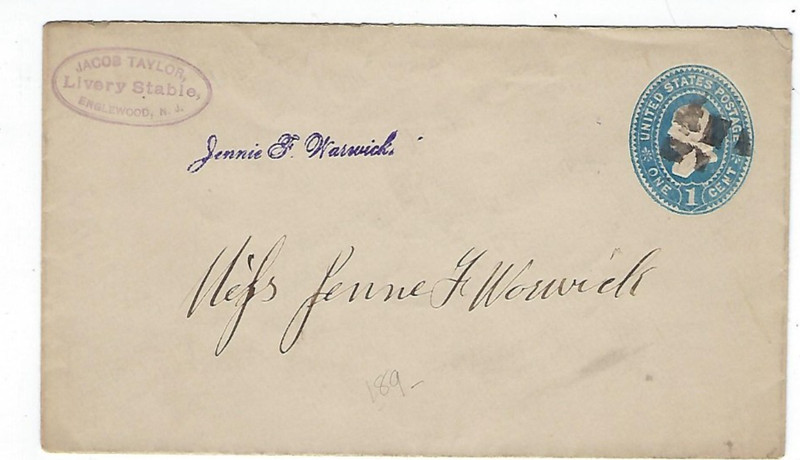 JACOB TAYLOR,
Livery Stable,
ENGLEWOOD, N. J.
UNITED STATES POSTAGE
ONE 1 CENT
Jennie F. Warwick.
Miss Jenne F Worwick
189-